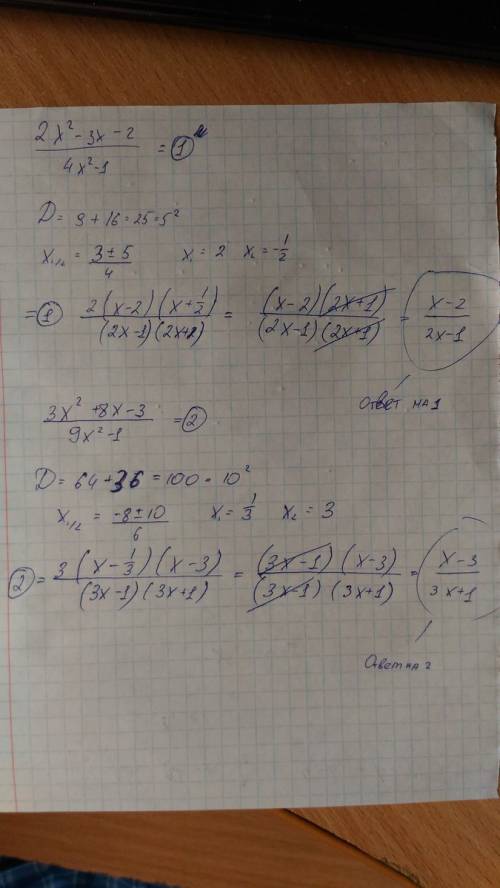 (2x² - 3x - 2)/(4x² - 1) = ①
D = 9 + 16 = 25 = 5²
x₁,₂ = (3 ± 5)/4 x₁ = 2 x₂ = -1/2
= ① (2(x-2)(x+1/2))/((2x-1)(2x+1)) = ((x-2)(2x+1))/((2x-1)(2x+1)) = (x-2)/(2x-1)
Ответ на 1
(3x² + 8x - 3)/(9x² - 1) = ②
D = 64 + 36 = 100 = 10²
x₁,₂ = (-8 ± 10)/6 x₁ = 1/3 x₂ = 3
② = (3(x - 1/3)(x-3))/((3x-1)(3x+1)) = ((3x-1)(x-3))/((3x-1)(3x+1)) = (x-3)/(3x+1)
Ответ на 2